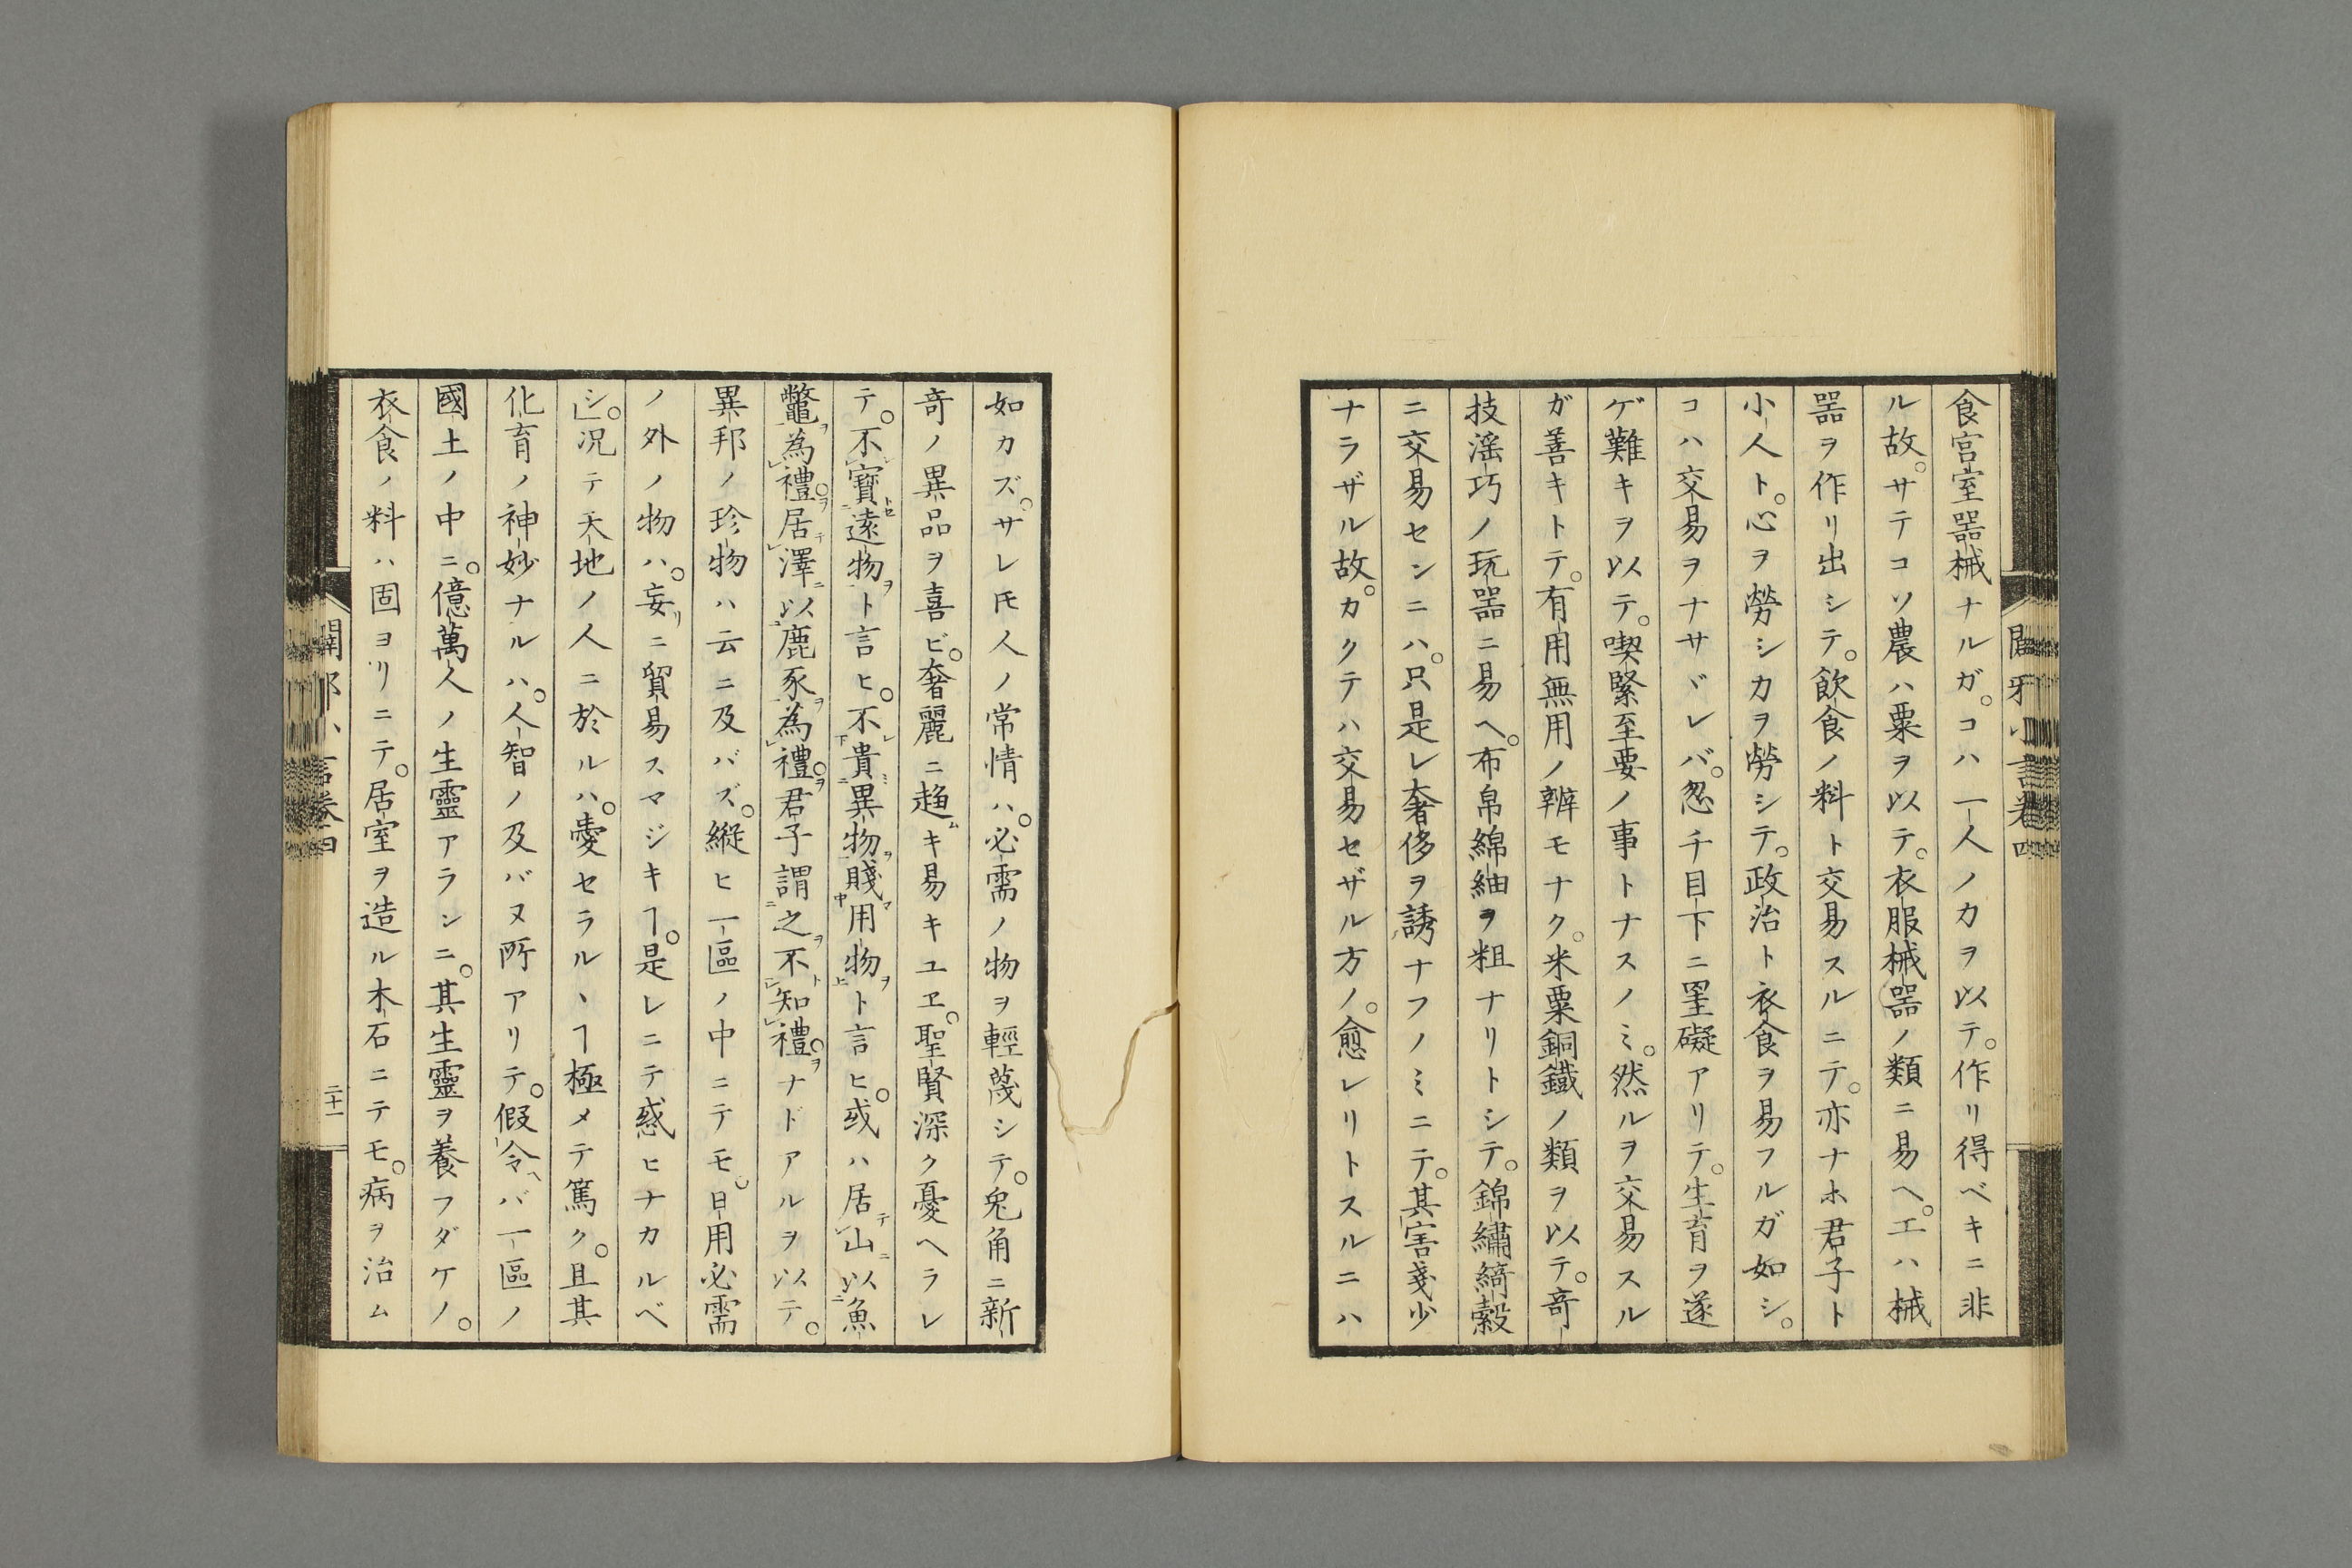 食宮室噐械ナルガ。コハ一人ノカヲ以テ。作リ得ベキニ非
ル故。サテコソ農ハ粟ヲ以テ。衣服械噐ノ類ニ易ヘ。工ハ械
噐ヲ作リ出シテ。飲食ノ料ト交易スルニテ。亦ナホ君子ト
小人ト。心ヲ勞シカヲ勞シテ。政治ト衣食ヲ易フルガ如シ。
コハ交易ヲナサヾレバ。忽チ目下ニ罣礙アリテ。生育ヲ遂
ゲ難キヲ以テ。喫緊至要ノ事トナスノミ。然ルヲ交易スル
ガ善キトテ。有用無用ノ辨モナク。米粟銅鐵ノ類ヲ以テ。竒
技滛巧ノ玩噐ニ易ヘ。布帛綿紬ヲ粗ナリトシテ。錦繡綺縠
ニ交易センニハ。只是レ奢侈ヲ誘ナフノミニテ。其害戔少
ナラザル故。カクテハ交易セザル方ノ。愈レリトスルニハ
如カズ。サレ𪜈人ノ常情ハ。必需ノ物ヲ輕蔑シテ。兎角ニ新
竒ノ異品ヲ喜ビ。奢麗ニ趨ムキ易キユヱ。聖賢深ク憂ヘラレ
テ。不レ寶トセ二遠物一ヲト言ヒ。不下レ貴ミ二異物一ヲ賤中マ用物上ヲト言ヒ。或ハ居テレ山ニ以二魚
鼈一ヲ為レ禮ヲ。居テレ澤ニ以二鹿豕一ヲ為レ禮ヲ。君子謂二之ヲ不トレ知レ禮ヲ。ナドアルヲ以テ。
異邦ノ珍物ハ云ニ及バズ。縱ヒ一區ノ中ニテモ。日用必需
ノ外ノ物ハ。妄リニ貿易スマジキヿ。是レニテ惑ヒナカルベ
シ。」况テ天地ノ人ニ於ルハ。愛セラルヽヿ極メテ篤ク。且其
化育ノ神妙ナルハ。人智ノ及バヌ所アリテ。假令ヘバ一區ノ
國土ノ中ニ。億萬人ノ生靈アランニ。其生靈ヲ養フダケノ。
衣食ノ料ハ固ヨリニテ。居室ヲ造ル木石ニテモ。病ヲ治ム
闢邪小言卷四
二十一